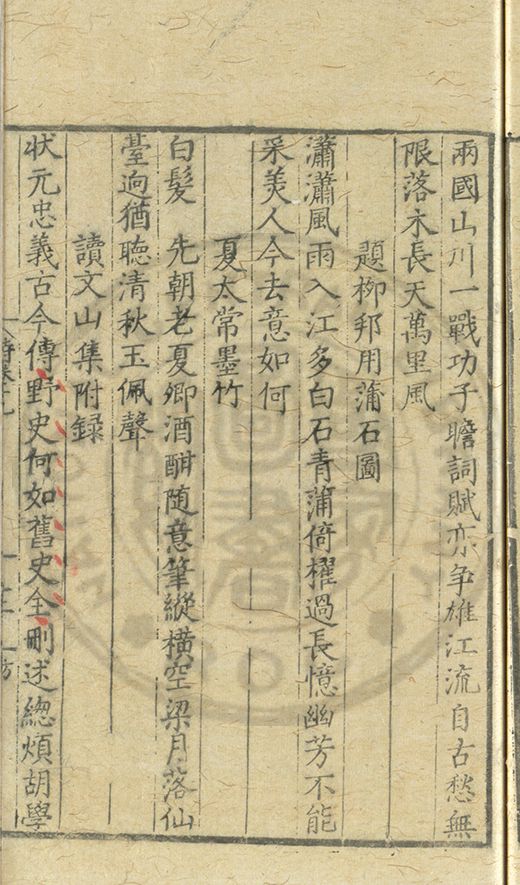 兩國山川一戰功子瞻詞賦亦争雄江流自古愁無
限落木長天萬里風
題柳邦用蒲石圖
瀟瀟風雨入江多白石青蒲倚櫂過長憶幽芳不能
采美人今去意如何
夏太常墨竹
白髮 先朝老夏卿酒酣随意筆縱横空梁月落仙
臺逈猶聴清秋玉佩聲
讀文山集附録
狀元忠義古今傳野史何如舊史全刪述總煩胡學